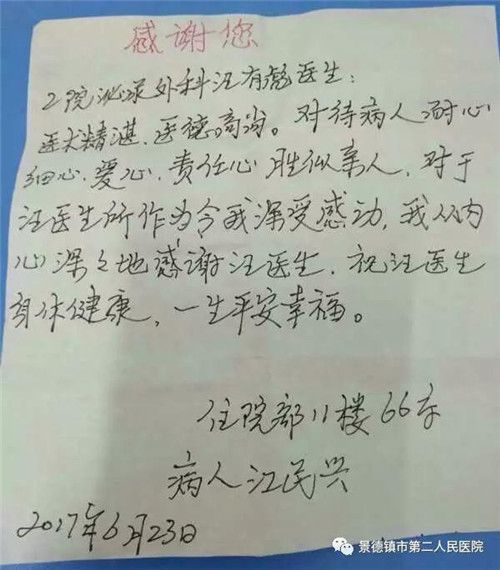 感谢您
2院泌尿外科汪有彪医生:
医术精湛、医德高尚。对待病人耐心
细心、爱心、责任心胜似亲人,对于
汪医生所作为令我深受感动,我从内
心深深地感谢汪医生,祝汪医生
身体健康,一生平安幸福。
住院部11楼66床
病人江民兴
2017年6月23日
景德镇市第二人民医院